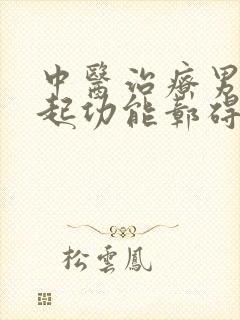 中醫治療男
起功能鄣碍
松雲鳳